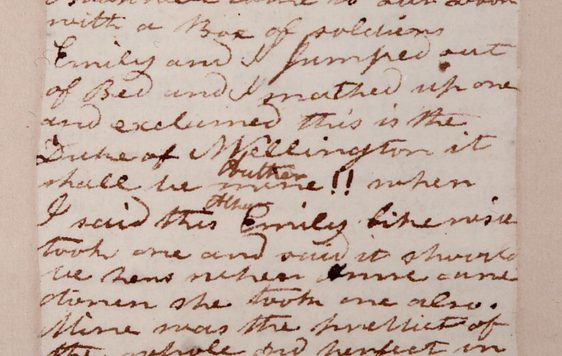 with a Box of soldiers
Emily and I Jumped out
of Bed and I snathed up one
and exclamed this is the
Duke of Wellington it
shall be mine!! when
I said this Emily likewise
took one and said it should
be hers when Anne came
down she took one also.
Mine was the prettiest of
the whole and perfect in